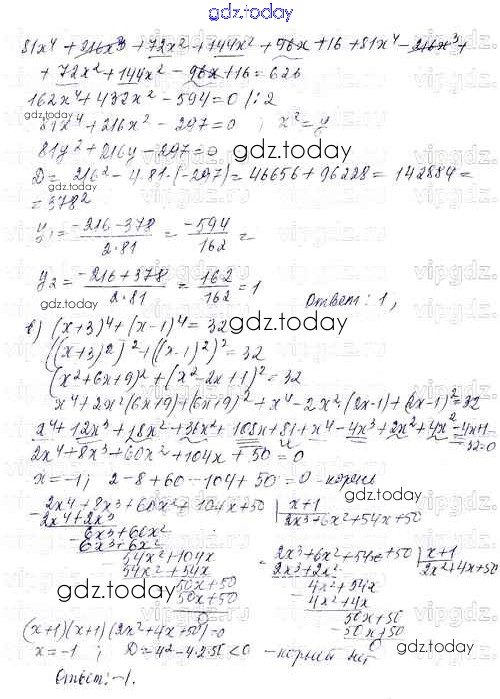 gdz.today
81x⁴ + 216x³ + 72x² + 144x² + 96x + 16 + 81x⁴ - 216x³ +
+ 72x² + 144x² - 96x + 16 = 626
162x⁴ + 432x² - 594 = 0 /:2
81x⁴ + 216x² - 297 = 0 ; x² = y
81y² + 216y - 297 = 0
D = 216² - 4·81·(-297) = 46656 + 96228 = 142884 =
= 378²
y₁ = (-216-378)/(2·81) = -594/162 =
y₂ = (-216+378)/(2·81) = 162/162 = 1
Ответ: 1,
в) (x+3)⁴ + (x-1)⁴ = 32
((x+3)²)² + ((x-1)²)² = 32
(x²+6x+9)² + (x²-2x+1)² = 32
x⁴ + 2x²(6x+9) + (6x+9)² + x⁴ - 2x²·(2x-1) + (2x-1)² = 32
x⁴ + 12x³ + 18x² + 36x² + 108x + 81 + x⁴ - 4x³ + 2x² + 4x² - 4x + 1 -
- 32 = 0
2x⁴ + 8x³ + 60x² + 104x + 50 = 0
x = -1; 2 - 8 + 60 - 104 + 50 = 0 - корень
2x⁴ + 8x³ + 60x² + 104x + 50 | x+1
2x⁴ + 2x³ 2x³ + 6x² + 54x + 50
6x³ + 60x²
6x³ + 6x²
54x² + 104x
54x² + 54x
50x + 50
50x + 50
0
2x³ + 6x² + 54x + 50 | x+1
2x³ + 2x² 2x² + 4x + 50
4x² + 54x
4x² + 4x
50x + 50
50x + 50
0
(x+1)(x+1)(2x²+4x+50) = 0
x = -1; D = 4² - 4·2·50 < 0 - корней нет
Ответ: -1.
gdz.today